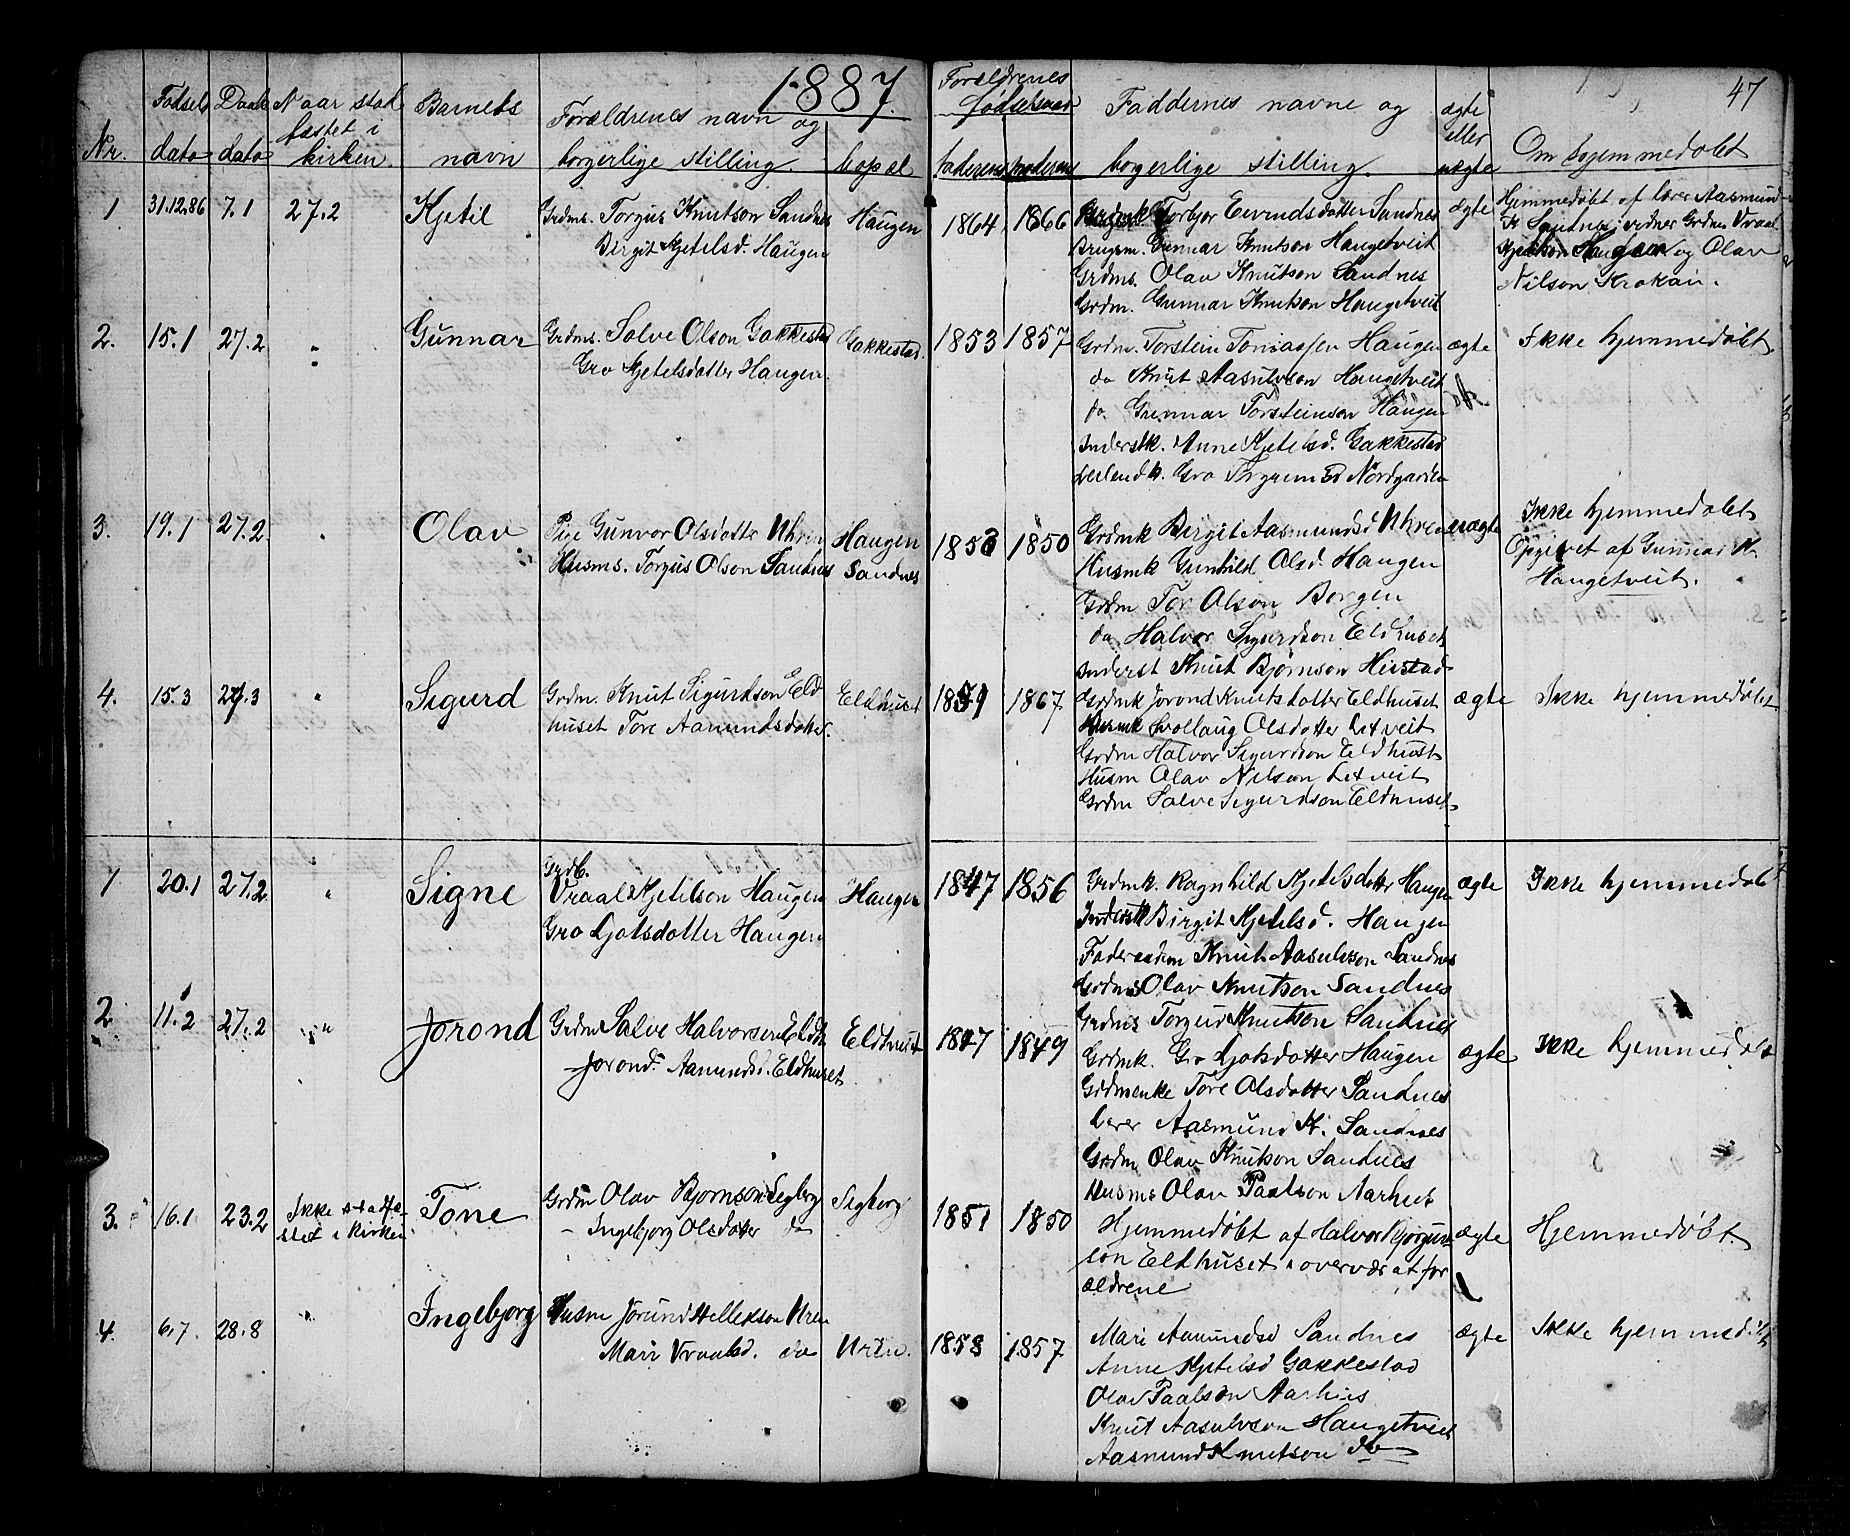 1887.
47
Nr.
Fødsels dato
Daabs dato
Naar stad fæstet i kirken.
Barnets navn
Forældrenes navn og borgerlige stilling.
bopæl
Forældrenes fødselsaar
faderens moderens
Faddernes navne og borgerlige stilling.
ægte eller uægte
Om hjemmedøbt
1 31.12.86 7.1 27.2 Kjetil
Grdms. Torgus Knutson Sandnes
Birgit Kjetilsd. Haugen
Haugen
1864 1866
Torbjør Eivindsdatter Sandnes
Brugsm. Gunnar Knutson Haugetveit
Grdms. Olav Knutson Sandnes
Grdm. Gunnar Knutson Haugetveit
ægte
Hjemmedøbt af lærer Aasmund
K. Sandnes; vidner Grdm. Vraal
Haugen og Olav
Nilson Krokan.
2. 15.1 27.2 " Gunnar
Grdms. Salve Olson Gakkestad
Gro Kjetelsdatter Haugen.
Gakkestad.
1853 1857
Grdm. Torstein Tomassen Haugen
do Knut Aasulvson Haugetveit
do Gunnar Torsteinson Haugen
Inderstk. Anne Kjetelsd. Gakkestad
Leilendk. Gro Torgrimsd Nordgarden
ægte
Ikke hjemmedøbt.
3. 19.1 27.2. " Olav
Pige Gunvor Olsdatter Uhren
Husms. Torgus Olson Sandnes
Haugen
Sandnes
1850
Grdmk Birgit Aasmundsd Uhren
Husmk Gunhild Olsd. Haugen
Grdm Tor Olson Borgen
do Halvor Sigurdson Eldhuset
Inderst Knut Bjørnson
uægte
Ikke hjemmedøbt
Opgivet af Gunnar K.
Haugetveit.
4. 15.3 27.3 " Sigurd
Grdm. Knut Sigurdson Eld
huset Tore Aamundsdatter.
Eldhuset
1867
Grdmk Jorond Knutsdatter Eldhuset
Olsdatter Lytveit
Grdm Halvor Sigurdson Eldhuset
Husm Olav Nilson Lytveit
Grdm Salve Sigurdson Eldhuset
ægte
Ikke hjemmedøbt
1 20.1 27.2 " Signe
Grdb.
Vraal Kjetelson Haugen
Gro Ljotsdotter Haugen
Haugen
1847 1856
Grdmk. Ragnhild Kjetelsdotter Haugen
Inderstk Birgit Kjetelsd. Haugen
Knut Aasulvson Sandnes
Grdms Olav Knutson Sandnes
ægte
Ikke hjemmedøbt
2 11.2 27.2 " Jorond
Grdm Salve Halvorson Eldh.
Jorond Aamundsd. Eldhuset
Eldhuset
1847 1849
Grdms Torgus Knutson Sandnes
Grdmk. Gro Ljotsdotter Haugen
Grdmenke Tore Olsdotter Sandnes
Lærer Aasmund K. Sandnes
Grdm Olav Knutson Sandnes
Husms Olav Paalson Aarhus
ægte
Ikke hjemmedøbt
3. 16.1 23.2
Ikke stadfæ-
stet i kirken.
Tone
Grdm Olav Bjørnson Segberg
– Ingebjorg Olsdotter do
Segberg
1851 1850
Hjemmedøbt af Halvor
son Eldhuset i overvær af for
ældrene
ægte
Hjemmedøbt.
4. 6.7 28.8 " Ingebjorg
Husm Jørund Hellekson Uren
Mari Vraalsd. do
Uren.
1858 1857
Mari Aamundsd Sandnes
Anne Kjetelsd Gakkestad
Olav Paalson Aarhus
Knut Aasulvson Haugetveit
Aasmund Knutson do
ægte
Ikke hjemmedøbt